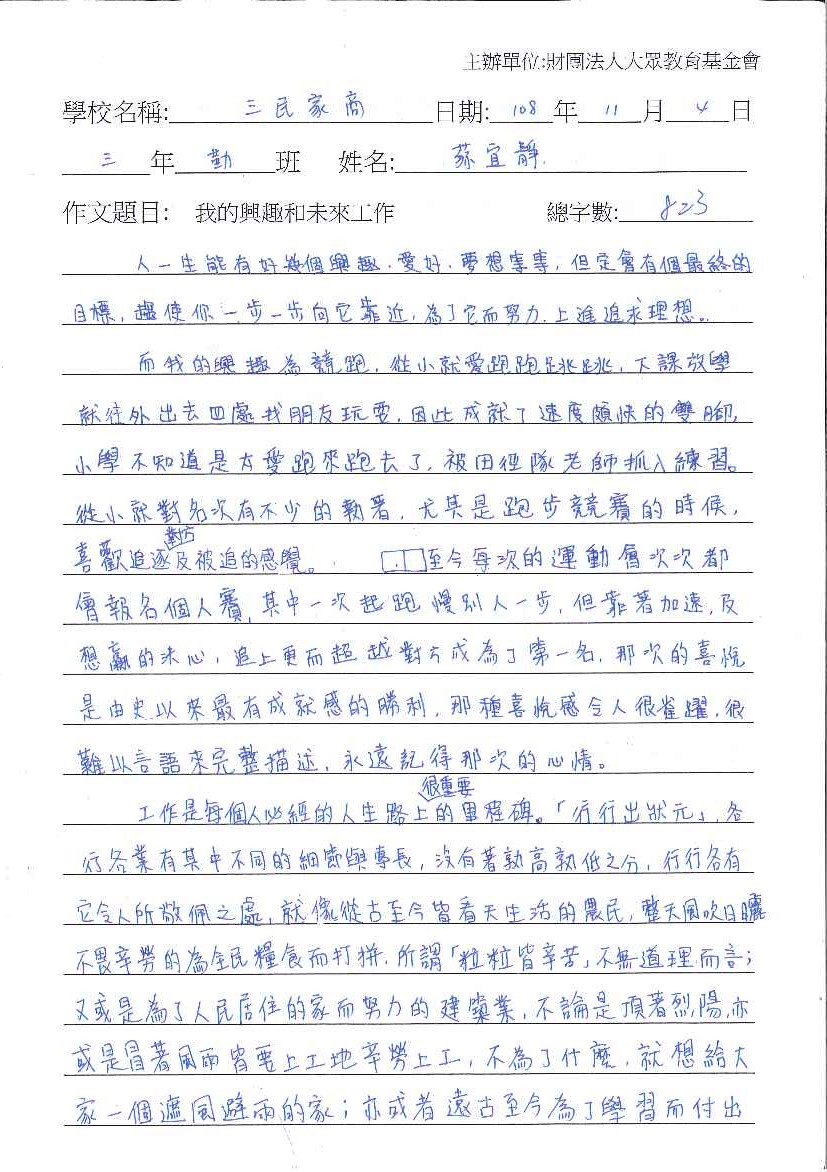 主辦單位:財團法人大眾教育基金會
學校名稱: 三民家商 日期: 108 年 11 月 4 日
三 年 勤 班 姓名: 蘇宜靜
作文題目: 我的興趣和未來工作 總字數: 823
人一生能有好幾個興趣、愛好、夢想事事,但定會有個最終的
目標,趨使你一步一步向它靠近,為了它而努力、上進追求理想。
而我的興趣為競跑,從小就愛跑跑跳跳,下課放學
就往外出去四處找朋友玩耍,因此成就了速度頗快的雙腳,
小學不知道是太愛跑來跑去了,被田徑隊老師抓入練習。
從小就對名次有不少的執著,尤其是跑步競賽的時候,
對方
喜歡追逐及被追的感覺。 至今每次的運動會次次都
會報名個人賽,其中一次起跑慢別人一步,但靠著加速,及
想贏的決心,追上更而超越對方成為了第一名,那次的喜悅
是由史以來最有成就感的勝利,那種喜悅感令人很雀躍,很
難以言語來完整描述,永遠記得那次的心情。
很重要
工作是每個人必經的人生路上的里程碑。「行行出狀元」,各
行各業有其中不同的細節與專長,沒有著孰高孰低之分,行行各有
它令人所敬佩之處,就像從古至今皆看天生活的農民,整天風吹日曬
不畏辛勞的為全民糧食而打拼,所謂「粒粒皆辛苦」不無道理而言;
又或是為了人民居住的家而努力的建築業,不論是頂著烈陽,亦
或是冒著風雨皆要上工地辛勞上工,不為了什麼,就想給大
家一個遮風避雨的家;亦或者遠古至今為了學習而付出